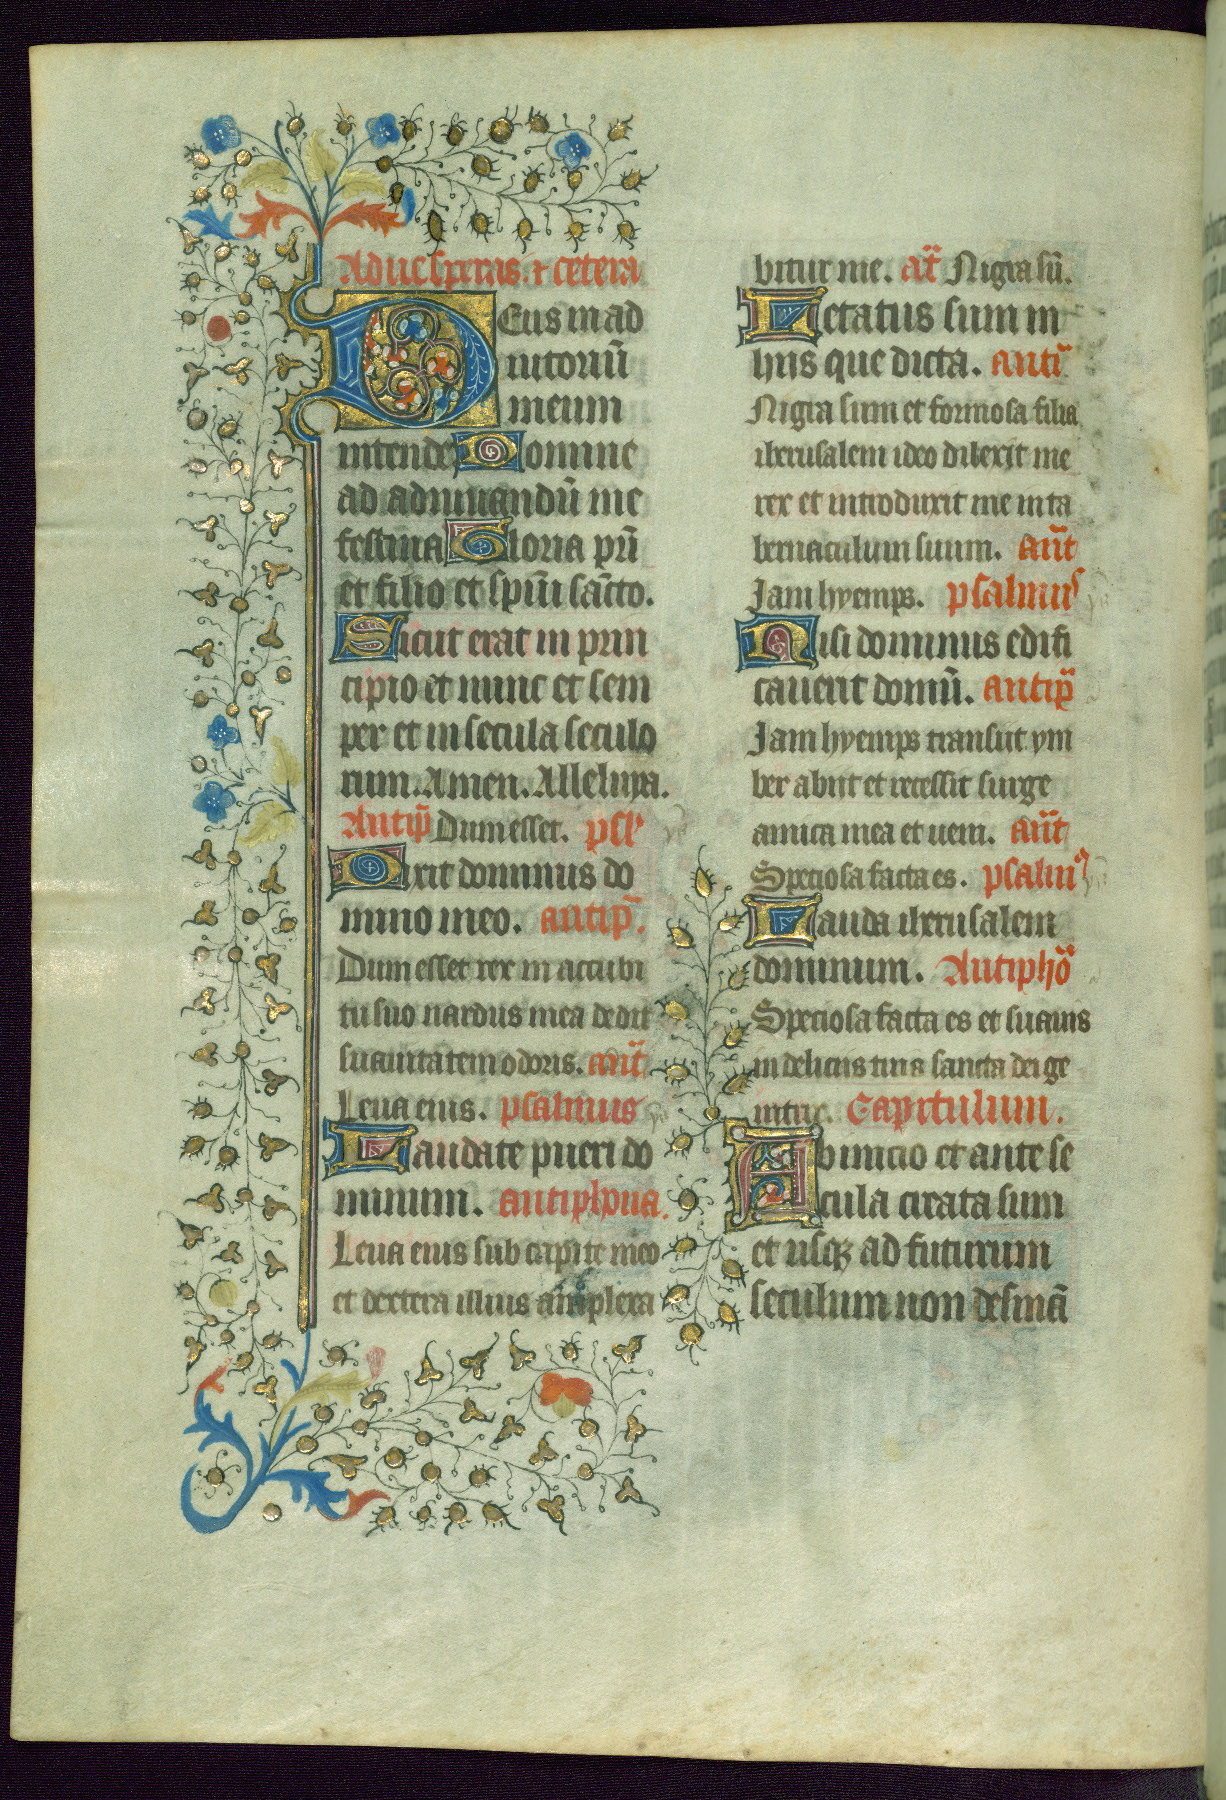 Ad uesperas. et cetera
Deus in ad
iutoriū
meum
intende Domine
ad adiuuandū me
festina Gloria pr̄i
et filio et sp̄ui sācto.
Sicut erat in prin
cipio et nunc et sem
per et in secula seculo
rum. Amen. Alleluya.
Antip̄ Dum esset. ps̄
Dixit dominus do
mino meo. antip̄.
Dum esset rex in accubi
tu suo nardus mea dedit
suauitatem odoris. an̄t
Leua eius. psalmus
Laudate pueri do
minum. antiphona.
Leua eius sub capite meo
et dextera illius amplexa
bitur me. an̄t Nigra sū.
Letatus sum in
hiis que dicta. anti
Nigra sum et formosa filia
iherusalem ideo dilexit me
rex et introduxit me in ta
bernaculum suum. an̄t
Jam hyemps. psalmus
Nisi dominus edifi
cauerit domū. antip̄
Jam hyemps transiit ym
ber abiit et recessit surge
amica mea et ueni. an̄t
Speciosa facta es. psalm9
Lauda iherusalem
dominum. Antipho
Speciosa facta es et suauis
in deliciis tuis sancta dei ge
nitrix. Capitulum.
Ab inicio et ante se
cula creata sum
et usq3 ad futurum
seculum non desinā